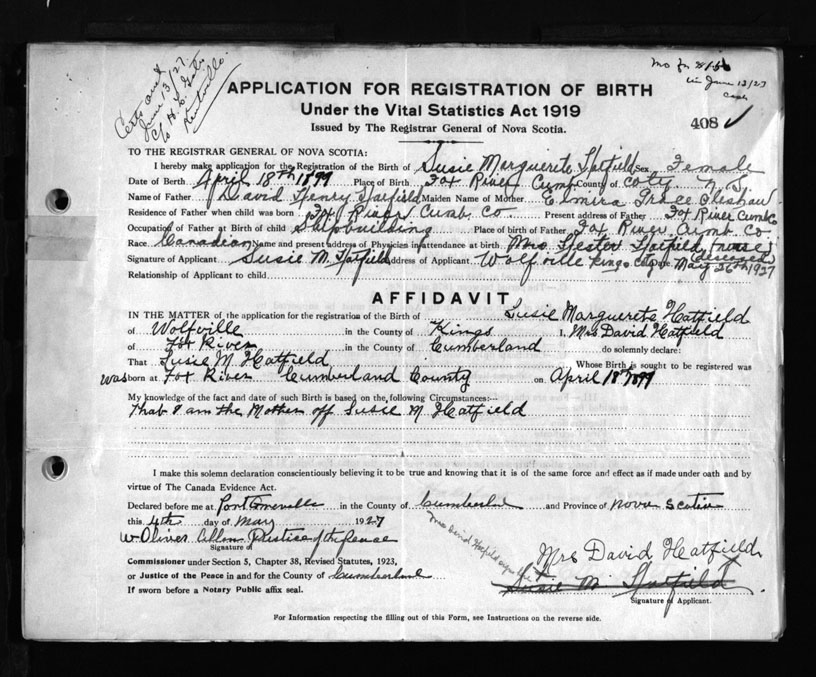 Certs out
June 13/27
c/o H. E. Gates
Kentville
Mo for $1.50
in June 13/27
APPLICATION FOR REGISTRATION OF BIRTH
Under the Vital Statistics Act 1919
Issued by The Registrar General of Nova Scotia.
408 ✓
TO THE REGISTRAR GENERAL OF NOVA SCOTIA:
I hereby make application for the Registration of the Birth of Susie Marguerete Hatfield Sex Female
Date of Birth April 18th 1899 Place of Birth Fox River Cumb County of Co'ty N.S.
Name of Father David Henry Hatfield Maiden Name of Mother Elmira
Residence of Father when child was born Fox River Cumb Co. Present address of Father Fox River Cumb Co
Occupation of Father at Birth of child Shipbuilding Place of birth of Father Fox River Cumb. Co.
Race Canadian Name and present address of Physician in attendance at birth Mrs Hester Hatfield (nurse) (deceased)
Signature of Applicant Susie M. Hatfield Address of Applicant Wolfville Kings Co Date May 26th 1927
Relationship of Applicant to child
AFFIDAVIT
IN THE MATTER of the application for the registration of the Birth of Susie Marguerete Hatfield
of Wolfville in the County of Kings I, Mrs David Hatfield
of Fox River in the County of Cumberland do solemnly declare:
That Susie M Hatfield Whose Birth is sought to be registered was
was born at Fox River Cumberland County on April 18 1899
My knowledge of the fact and date of such Birth is based on the following Circumstances:—
that I am the Mother off Susie M Hatfield
I make this solemn declaration conscientiously believing it to be true and knowing that it is of the same force and effect as if made under oath and by
virtue of The Canada Evidence Act.
Declared before me at Port Greville in the County of Cumberland and Province of Nova Scotia
this 4th day of May 1927
W Oliver Justice of the Peace
Signature of
Commissioner under Section 5, Chapter 38, Revised Statutes, 1923,
or Justice of the Peace in and for the County of Cumberland
If sworn before a Notary Public affix seal.
Mrs David Hatfield
Mrs David Hatfield
Susie M. Hatfield
Signature of Applicant.
For Information respecting the filling out of this Form, see Instructions on the reverse side.